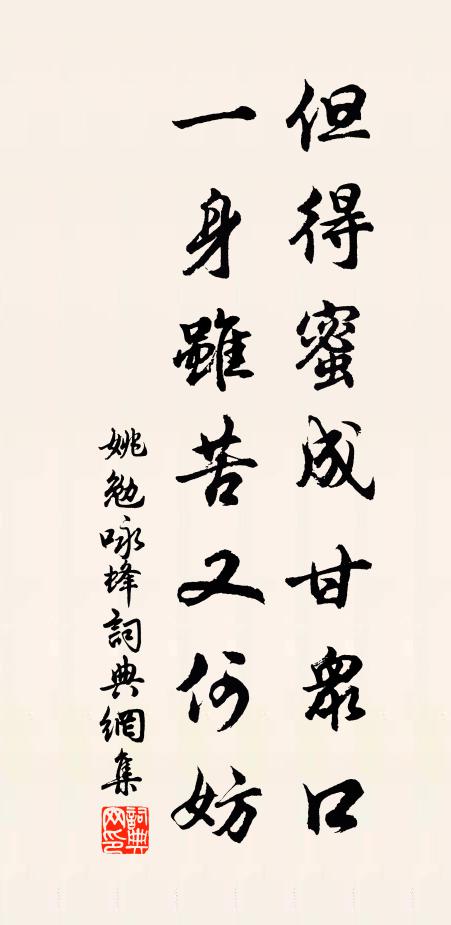 但得蜜成甘衆口
一身雖苦又何妨
姚勉咏蜂詞典網集
詞典
网印